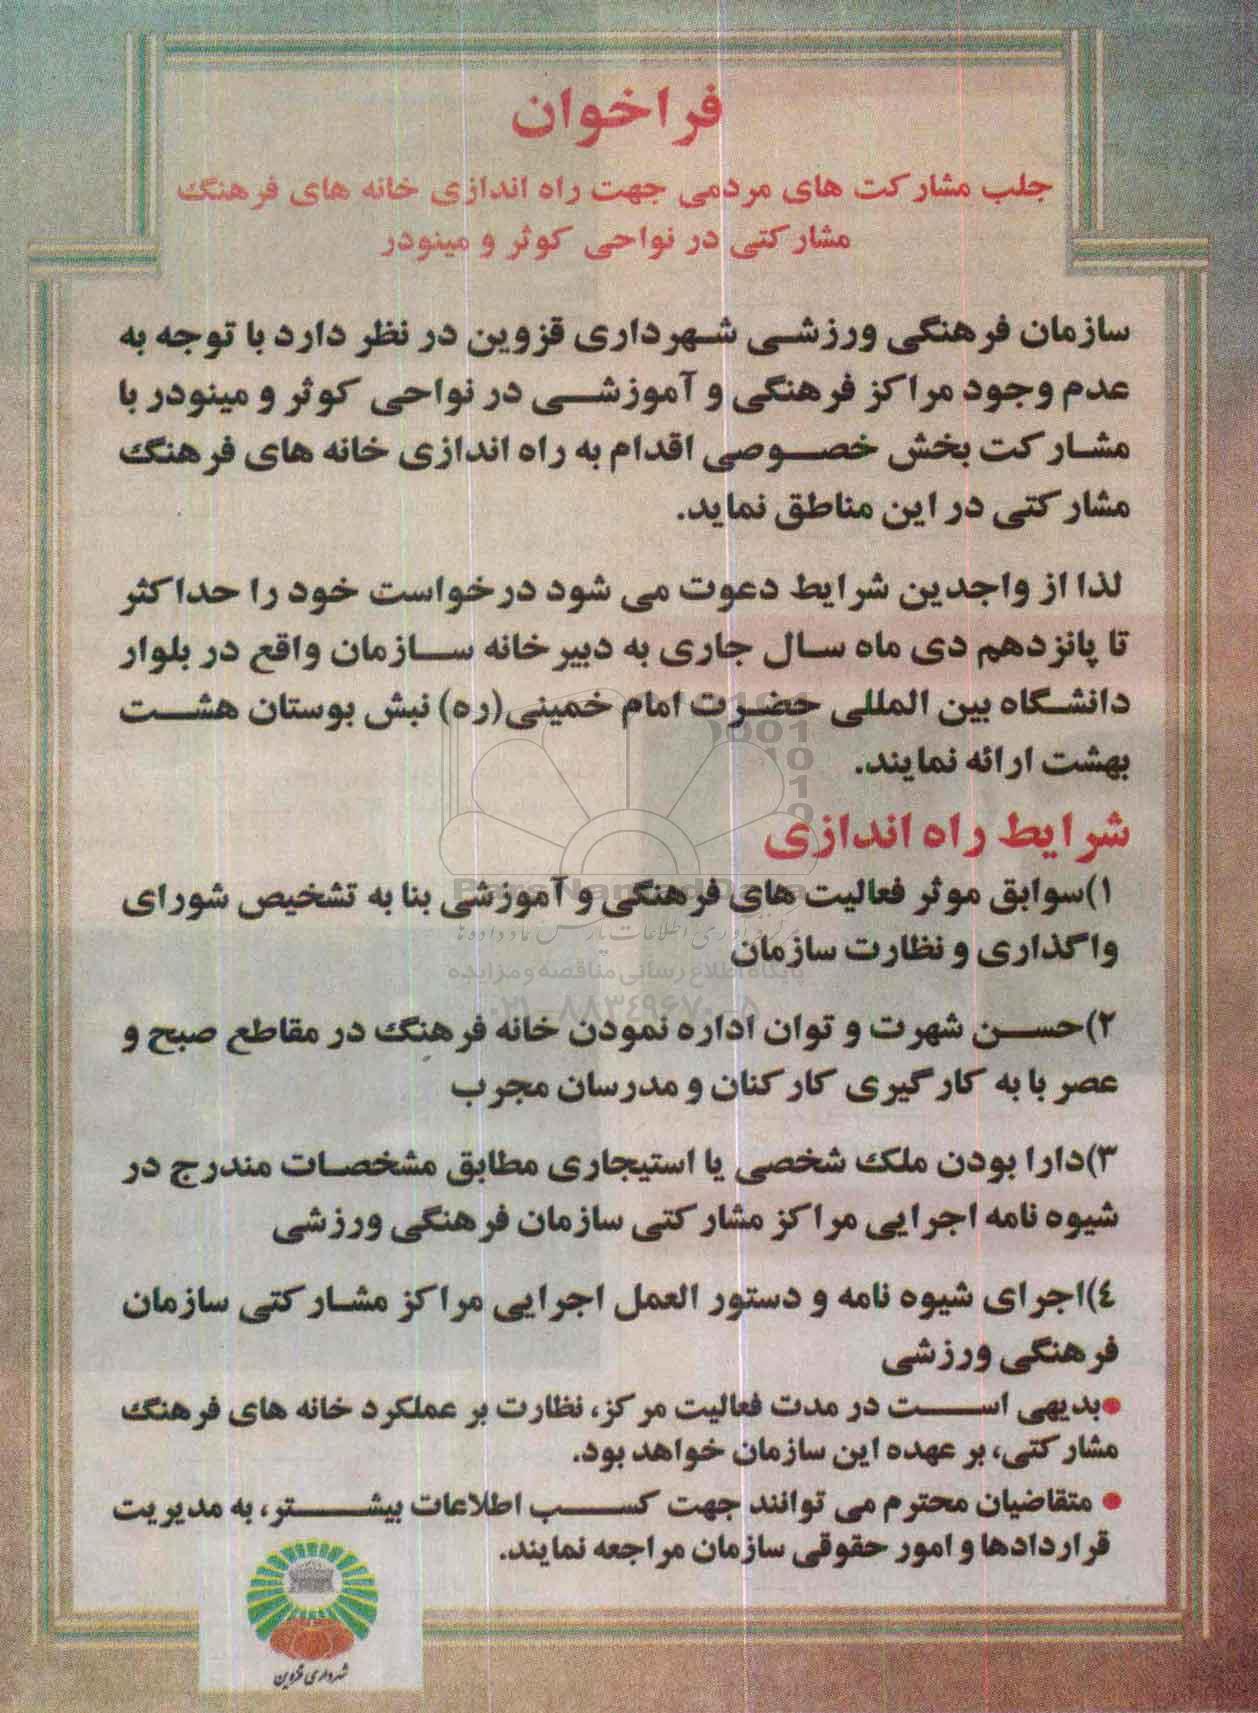 فراخوان
جلب مشارکت های مردمی جهت راه اندازی خانه های فرهنگ
مشارکتی در نواحی کوثر و مینودر
سازمان فرهنگی ورزشی شهرداری قزوین در نظر دارد با توجه به
عدم وجود مراکز فرهنگی و آموزشی در نواحی کوثر و مینودر با
مشارکت بخش خصوصی اقدام به راه اندازی خانه های فرهنگ
مشارکتی در این مناطق نماید.
لذا از واجدین شرایط دعوت می شود درخواست خود را حداکثر
تا پانزدهم دی ماه سال جاری به دبیرخانه سازمان واقع در بلوار
دانشگاه بین المللی حضرت امام خمینی(ره) نبش بوستان هشت
بهشت ارائه نمایند.
شرایط راه اندازی
۱)سوابق موثر فعالیت های فرهنگی و آموزشی بنا به تشخیص شورای
واگذاری و نظارت سازمان
پایگاه اطلاع رسانی مناقصه و مزایده
۰۲۱-۸۸۳۴۹۶۷۰-۵
۲)حسن شهرت و توان اداره نمودن خانه فرهنگ در مقاطع صبح و
عصر با به کارگیری کارکنان و مدرسان مجرب
۳)دارا بودن ملک شخصی یا استیجاری مطابق مشخصات مندرج در
شیوه نامه اجرایی مراکز مشارکتی سازمان فرهنگی ورزشی
٤)اجرای شیوه نامه و دستور العمل اجرایی مراکز مشارکتی سازمان
فرهنگی ورزشی
•بدیهی است در مدت فعالیت مرکز، نظارت بر عملکرد خانه های فرهنگ
مشارکتی، بر عهده این سازمان خواهد بود.
• متقاضیان محترم می توانند جهت کسب اطلاعات بیشتر، به مدیریت
قراردادها و امور حقوقی سازمان مراجعه نمایند.
شهرداری قزوین